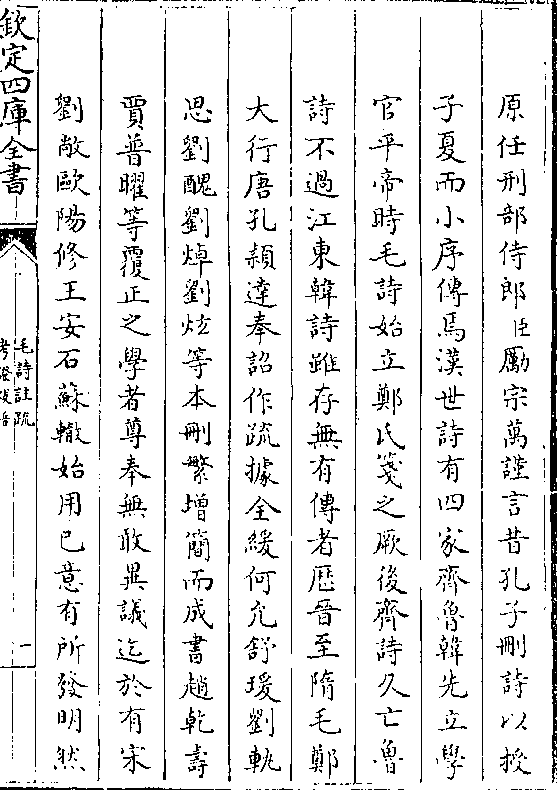 原任刑部侍郎臣勵宗萬謹言昔孔子刪詩以授
子夏而小序傳焉漢世詩有四家齊魯韓先立學
官平帝時毛詩始立鄭氏箋之厥後齊詩久亡魯
詩不過江東韓詩雖存無有傳者歷晉至隋毛鄭
大行唐孔穎達奉詔作疏據全緩何允舒瑗劉軌
思劉醜劉焯劉炫等本刪繁增簡而成書趙乾壽
賈普曜等覆正之學者尊奉無敢異議迄於有宋
劉敞歐陽修王安石蘇轍始用已意有所發明然
欽定四庫全書
毛詩註疏
考證跋語
一